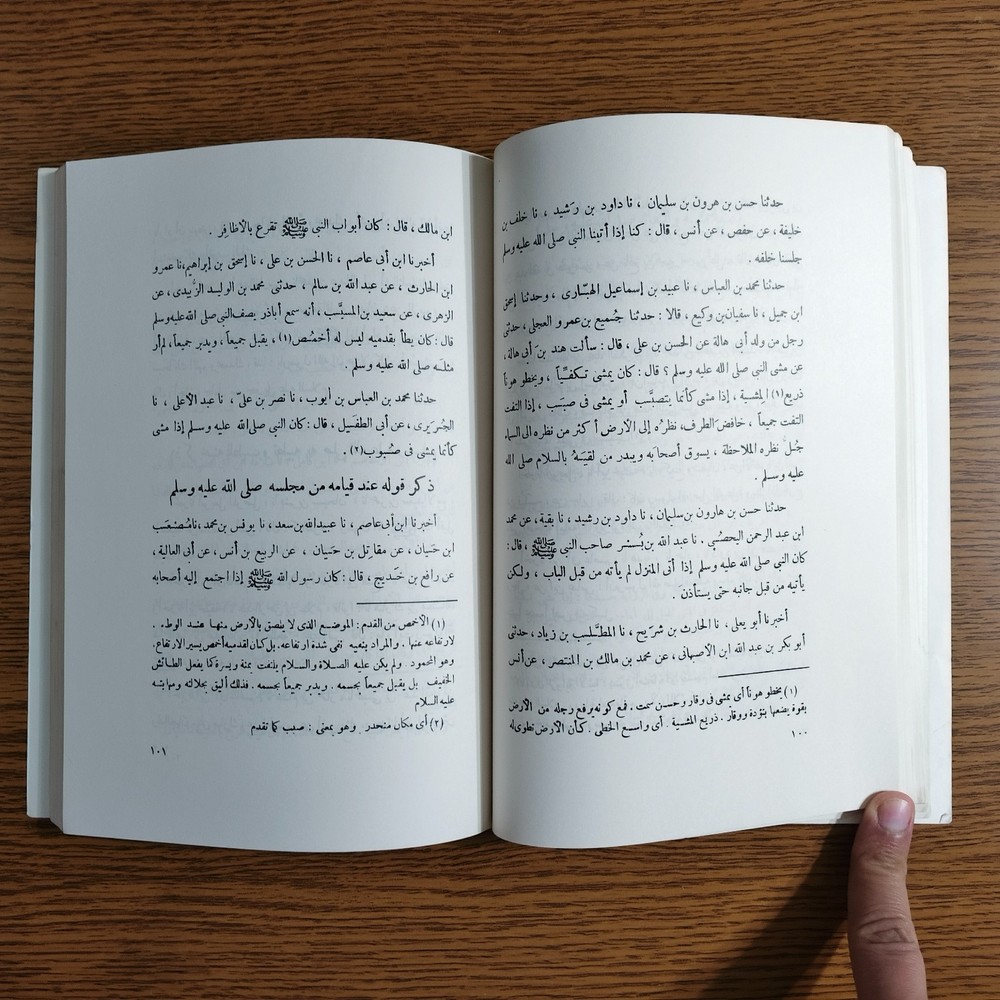 حدثنا حسن بن هرون بن سليمان ، نا داود بن رشيد ، نا خلف بن
خليفة ، عن حفص ، عن أنس ، قال : كنا إذا أتينا النبى صلى الله عليه وسلم
جلسنا خلفه .
حدثنا محمد بن العباس ، نا عبيد بن إسماعيل الهبّارى ، وحدثنا إسحق
ابن جميل ، نا سفيان بن وكيع ، قالا : حدثنا جُميع بن عمرو العجلى ، حدثنى
رجل من ولد أبى هالة عن الحسن بن على ، قال : سألت هند بن أبى هالة ،
عن مشى النبى صلى الله عليه وسلم ؟ قال : كان يمشى تكفـِّياً ، ويخطو هوناً
ذريع(١) المِشية ، إذا مشى كأنما يتصبَّب أو يمشى فى صبَب ، إذا التفت
التفت جميعاً ، خافض الطرف ، نظرُه إلى الأرض أكثر من نظره الى السماء
جُلّ نظره الملاحظة ، يسوق أصحابه ويبدر من لقيَهُ بالسلام صلى الله
عليه وسلم .
حدثنا حسن بن هارون بن سليمان ، نا داود بن رشيد ، نا بقية ، عن محمد
ابن عبد الرحمن اليحصُبي . نا عبد الله بن بُسْر صاحب النبى ﷺ ، قال :
كان النبى صلى الله عليه وسلم إذا أتى المنزل لم يأته من قبل الباب ، ولكن
يأتيه من قبل جانبه حتى يستأذن .
أخبرنا أبو يعلى ، نا الحارث بن شريح ، نا المطـَّلب بن زياد ، حدثنى
أبو بكر بن عبد الله ابن الأصبهانى ، عن محمد بن مالك بن المنتصر ، عن أنس
(١) يخطو هوناً أى يمشى فى وقار وحسن سمت . فمع كونه يرفع رجله من الأرض
بقوة يضعها بتؤدة ووقار . ذريع المشية . أى واسع الخطى . كأن الأرض تطوى له
١٠٠
ابن مالك ، قال : كان أبواب النبى ﷺ تقرع بالأظافِر .
أخبرنا ابن أبى عاصم ، نا الحسن بن على ، نا إسحق بن إبراهيم ، نا عمرو
ابن الحارث ، عن عبد الله بن سالم ، حدثنى محمد بن الوليد الزُبيدى ، عن
الزهرى ، عن سعيد بن المسيَّب ، أنه سمع أباذر يصف النبى صلى الله عليه وسلم
قال : كان يطأ بقدميه ليس له أخمُص (١) ، يقبل جميعاً ، ويدبر جميعاً ، لم أر
مثلَه صلى الله عليه وسلم .
حدثنا محمد بن العباس بن أيوب ، نا نصر بن علىّ ، نا عبد الأعلى ، نا
الجُرَيرى ، عن أبى الطفَيل ، قال : كان النبى صلى الله عليه وسلم إذا مشى
كأنما يمشى فى صُبوب(٢) .
ذكر قوله عند قيامه من مجلسه صلى الله عليه وسلم
أخبرنا ابن أبى عاصم ، نا عبيد الله بن سعد ، نا يونس بن محمد ، نا مُصْعَب
ابن حَيان ، عن مقاتل بن حَيان ، عن الربيع بن أنس ، عن أبى العالية ،
عن رافع بن خَديج ، قال : كان رسول الله ﷺ إذا اجتمع إليه أصحابه
(١) الأخمص من القدم : الموضع الذى لا يلصق بالأرض منها عند الوطء .
لارتفاعه عنها . والمراد بنفيه نفى شدة ارتفاعه . بل كان لقدميه أخمص يسير الارتفاع .
وهو المحمود ولم يكن عليه الصلاة والسلام يلتفت يمنة ويسرة كما يفعل الطائش
الخفيف بل يقبل جميعاً بجسمه . ويدبر جميعاً بجسمه . فذلك أليق بجلالته ومهابته
عليه السلام
(٢) أى مكان منحدر . وهو بمعنى : صبب كما تقدم
١٠١